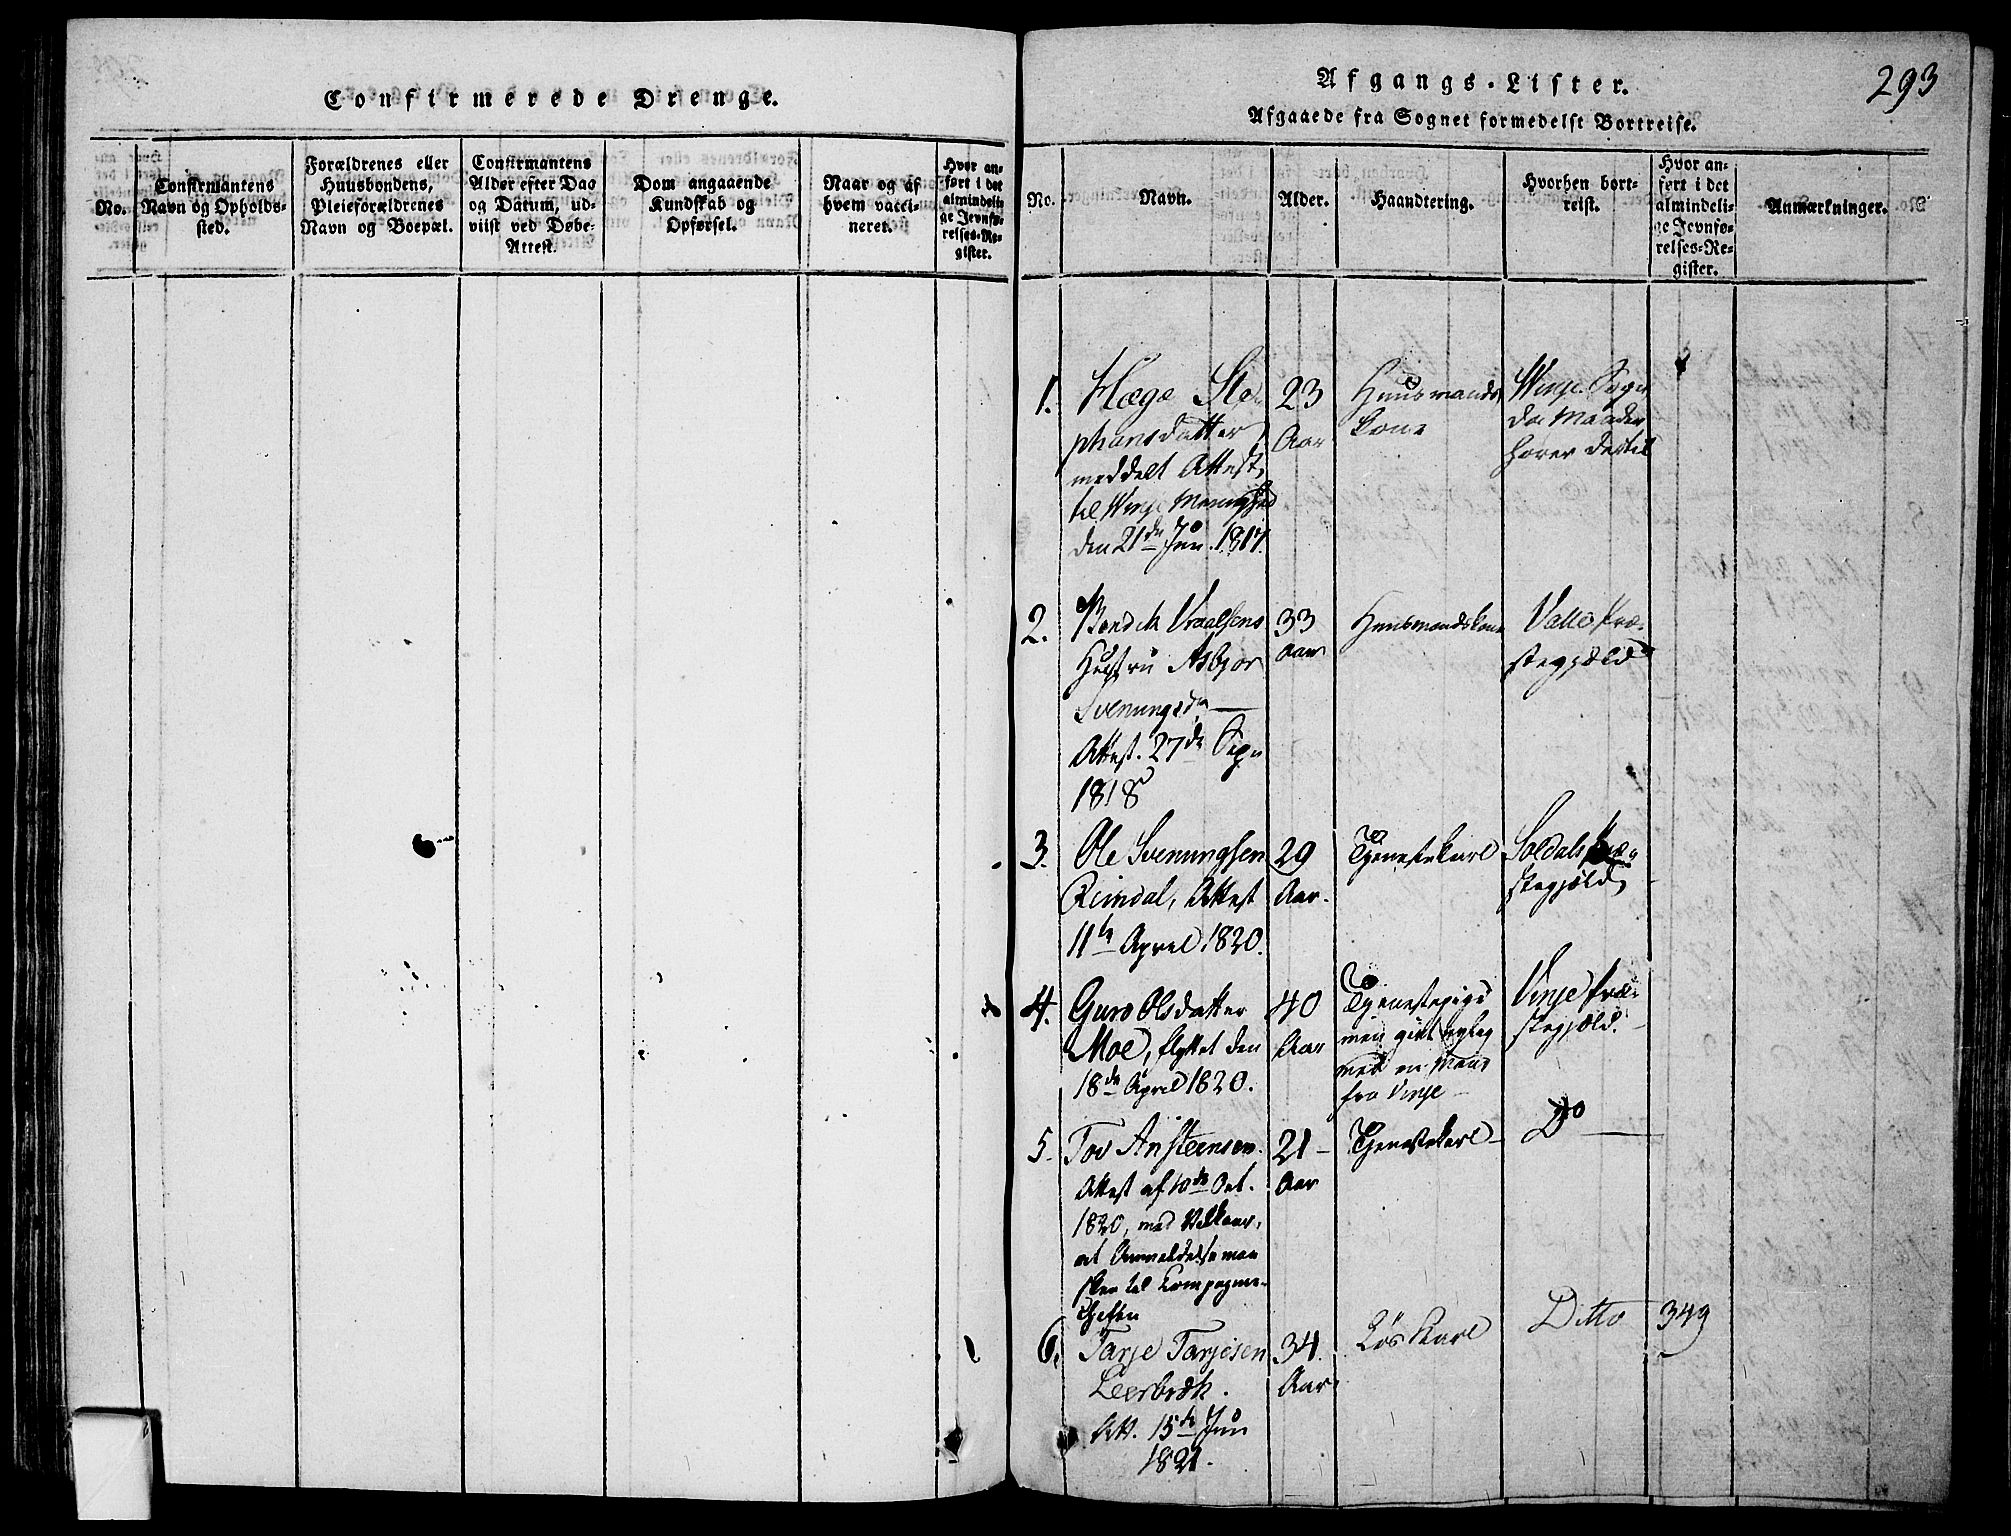 Confirmerede Drenge.
No.
Confirmantens
Navn og Opholds-
sted.
Forældrenes eller
Huusbondens,
Pleieforældrenes
Navn og Boepæl.
Confirmantens
Alder efter Dag
og Datum, ud-
viist ved Døbe-
Attest.
Dom angaaende
Kundskab og
Opførsel.
Naar og af
hvem vacci-
neret.
Hvor an-
ført i det
almindeli-
ge Jevnfø-
relses-Re-
gister.
293
Afgangs-Lister.
Afgaaede fra Sognet formedelst Bortreise.
No.
Navn.
Alder.
Haandtering.
Hvorhen bort-
reist.
Hvor an-
ført i det
almindeli-
ge Jevnfø-
relses-Re-
gister.
Anmærkninger.
1.
Hæge Ste-
phansdatter
meddelt Attest
til Winje Menighed
den 21de Jun. 1817.
23
Aar
Huusmands
kone
Winje Sogn
da Manden
hører dertil
2.
Bendik Vraalsens
Hustru Asbjør
Svenungsdr
Attest. 27de
1818
33
Aar
Huusmandskone
Valle Præ-
stegjæld
3.
Ole Svenungsen
Rimdal, Attest
11te April 1820.
29
Aar.
Tjenestekarl
Præ-
stegjæld
4.
Guro Olsdatter
Moe, flyttet den
18de April 1820.
40
Aar
Tjenestepige
men givt
med en Mand
fra Vinje
Vinje Præ-
stegjæld.
5.
Tov Ansteensen.
Attest af 10de Oct.
1820, med Vilkaar,
at Anmeldelse maa
skee til Compagnie-
Chefen
21
Aar
Tjenestekarl
Do
6.
Tarje Tarjesen
Leerbræk.
Att. 15de Jun
1821.
34.
Aar
Løs Karl
Ditto
349